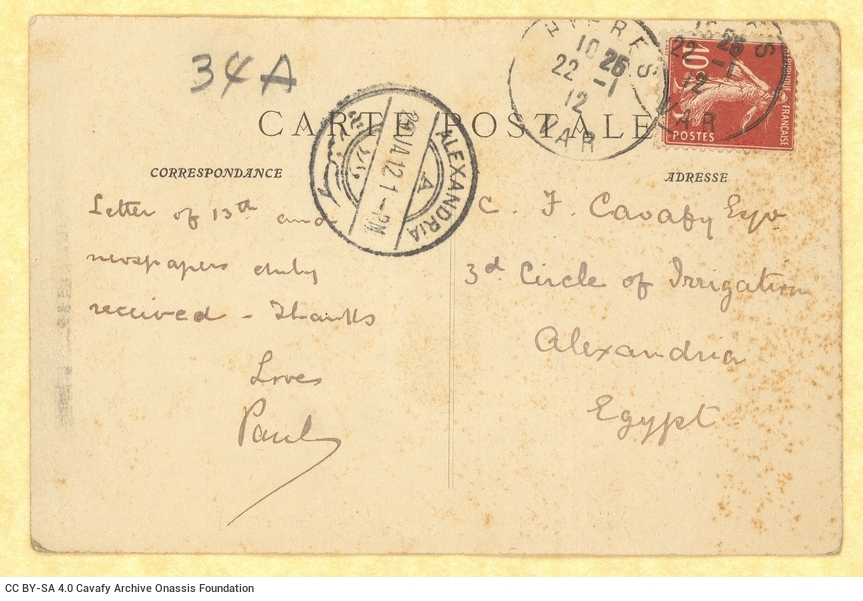 34A
CARTE POSTALE
HYERES
10 25
22 -1
12
VAR
10 25
22 -1
12
VAR
10
POSTES
RÉPUBLIQUE FRANÇAISE
ALEXANDRIA
A
1-PM
CORRESPONDANCE
Letter of 13th and
newspapers duly
received - Thanks
Loves
Paul
ADRESSE
C. F. Cavafy Esqr
3d Circle of Irrigation
Alexandria
Egypt.
CC BY-SA 4.0 Cavafy Archive Onassis Foundation